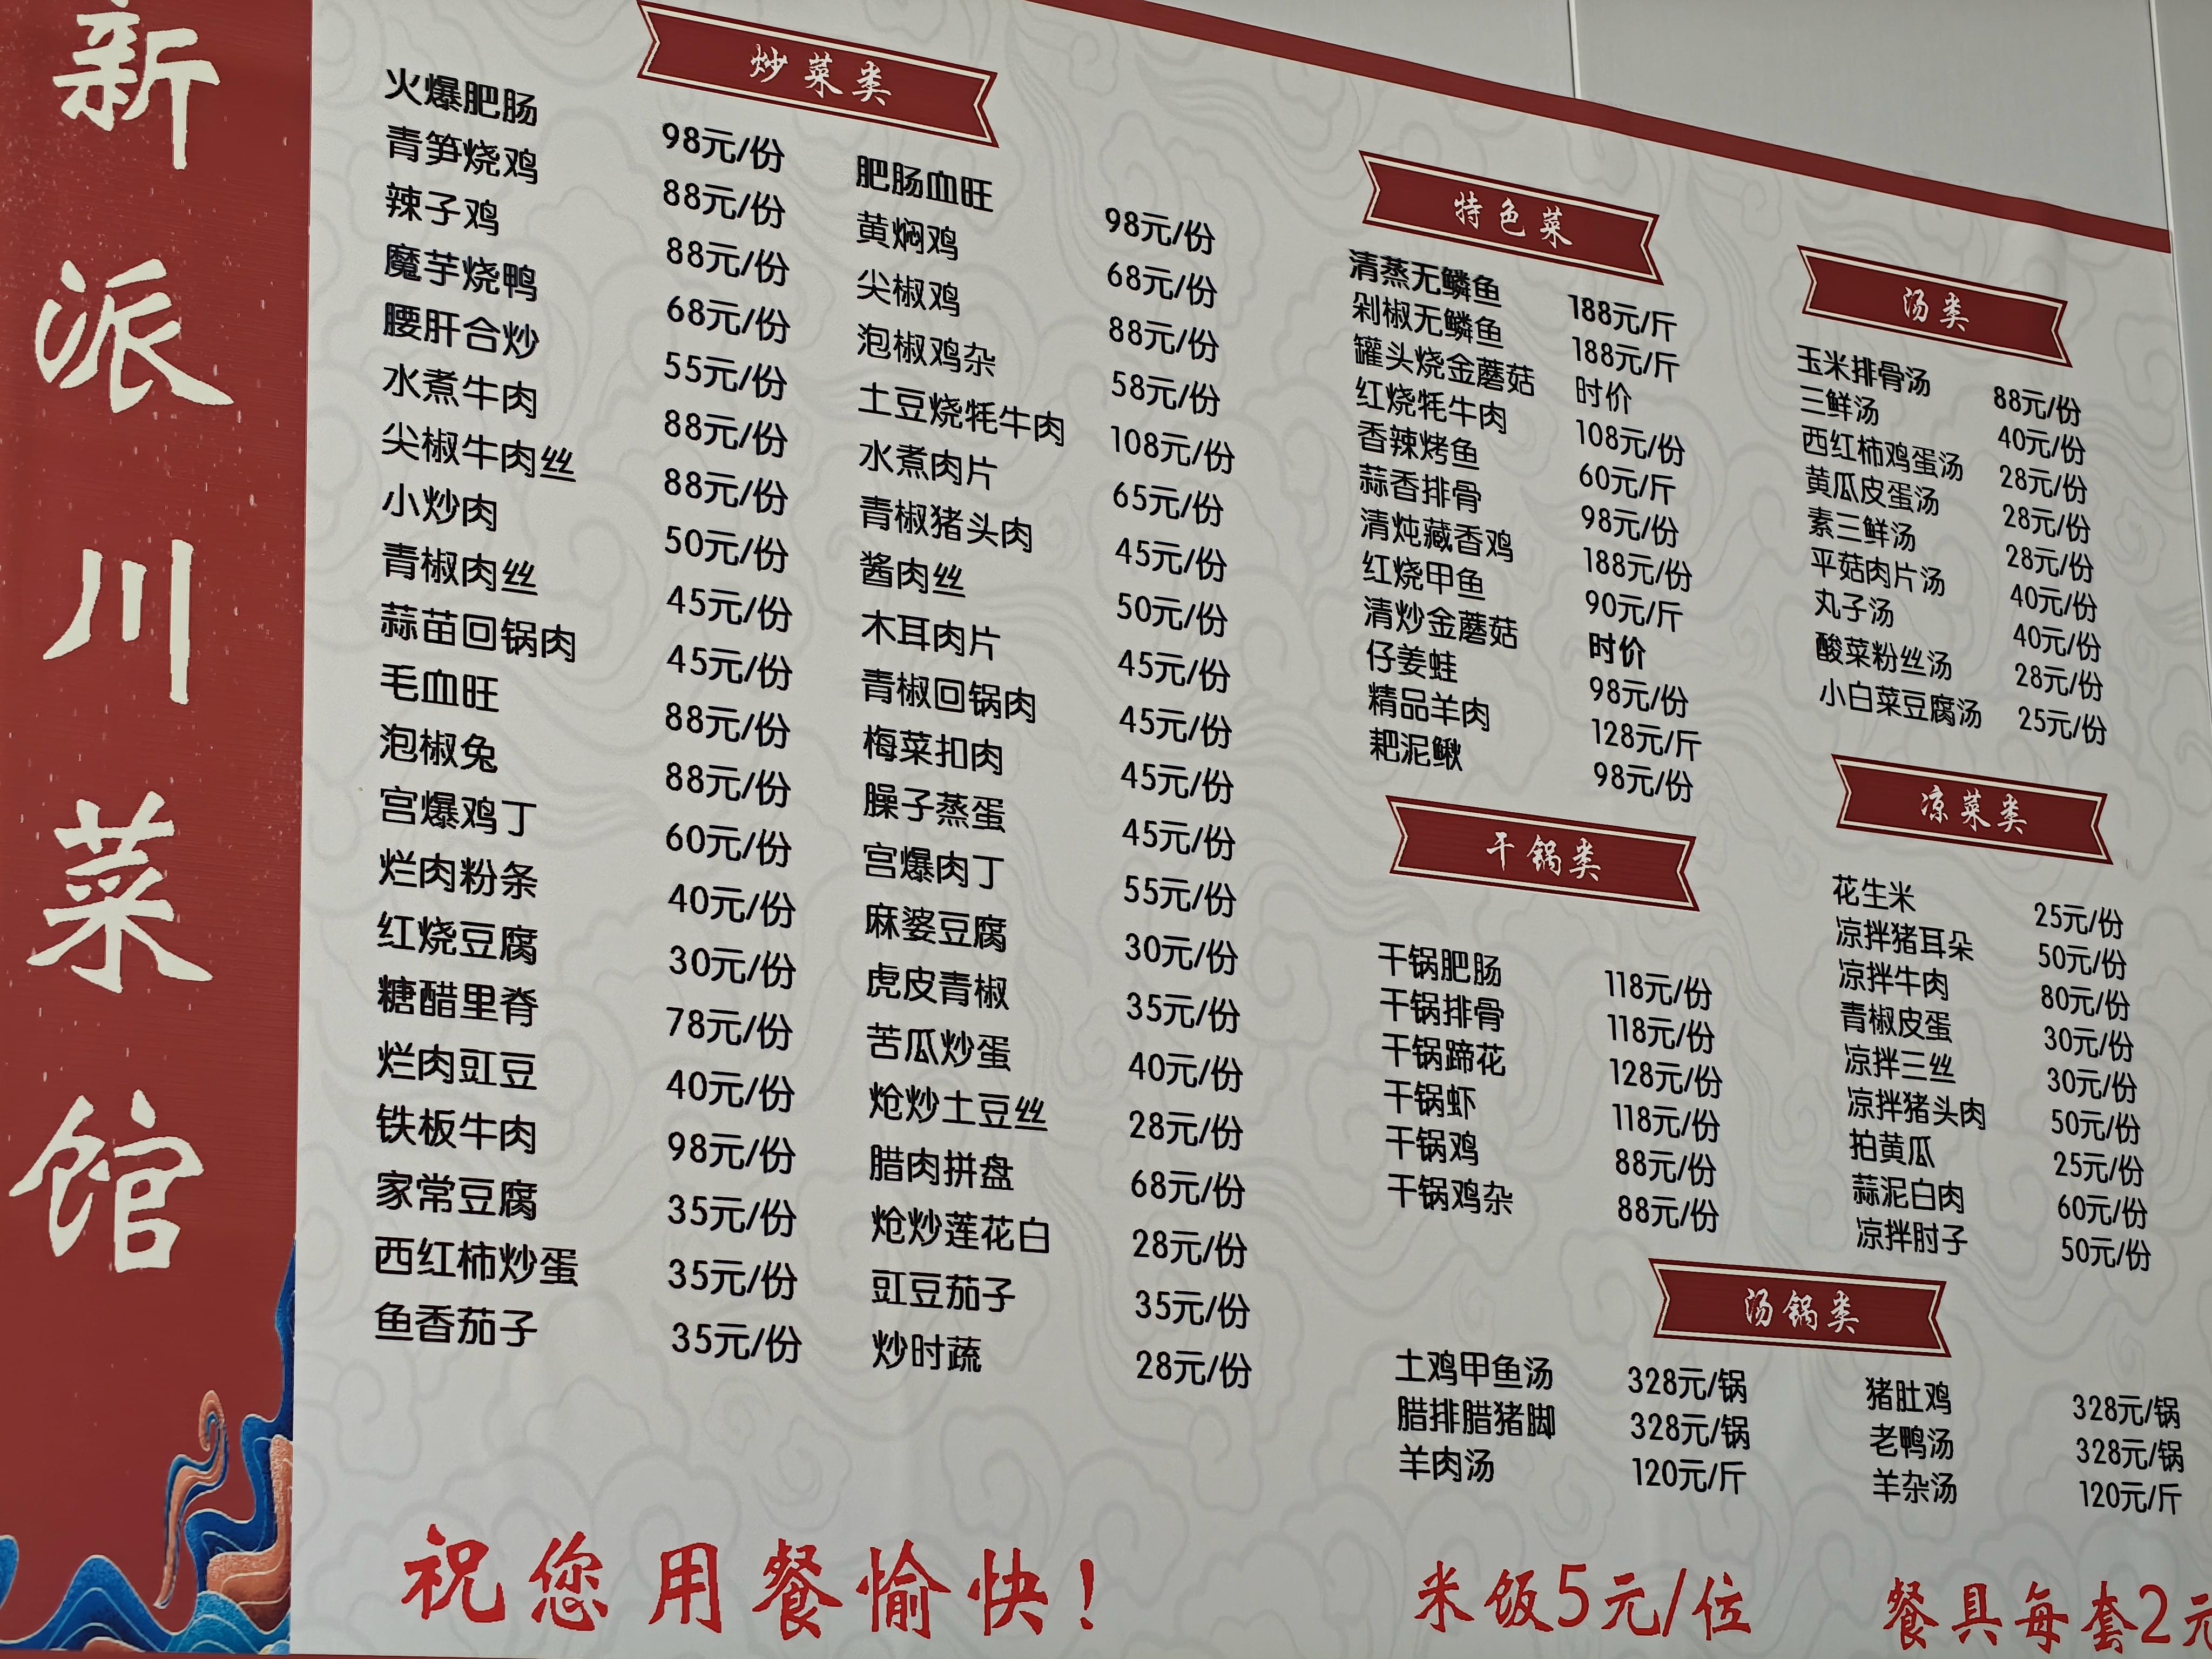 新派川菜馆
炒菜类
火爆肥肠 98元/份
青笋烧鸡 88元/份
辣子鸡 88元/份
魔芋烧鸭 68元/份
腰肝合炒 55元/份
水煮牛肉 88元/份
尖椒牛肉丝 88元/份
小炒肉 50元/份
青椒肉丝 45元/份
蒜苗回锅肉 45元/份
毛血旺 88元/份
泡椒兔 88元/份
宫爆鸡丁 60元/份
烂肉粉条 40元/份
红烧豆腐 30元/份
糖醋里脊 78元/份
烂肉豇豆 40元/份
铁板牛肉 98元/份
家常豆腐 35元/份
西红柿炒蛋 35元/份
鱼香茄子 35元/份
肥肠血旺 98元/份
黄焖鸡 68元/份
尖椒鸡 88元/份
泡椒鸡杂 58元/份
土豆烧牦牛肉 108元/份
水煮肉片 65元/份
青椒猪头肉 45元/份
酱肉丝 50元/份
木耳肉片 45元/份
青椒回锅肉 45元/份
梅菜扣肉 45元/份
臊子蒸蛋 45元/份
宫爆肉丁 55元/份
麻婆豆腐 30元/份
虎皮青椒 35元/份
苦瓜炒蛋 40元/份
炝炒土豆丝 28元/份
腊肉拼盘 68元/份
炝炒莲花白 28元/份
豇豆茄子 35元/份
炒时蔬 28元/份
特色菜
清蒸无鳞鱼 188元/斤
剁椒无鳞鱼 188元/斤
罐头烧金蘑菇 时价
红烧牦牛肉 108元/份
香辣烤鱼 60元/斤
蒜香排骨 98元/份
清炖藏香鸡 188元/份
红烧甲鱼 90元/斤
清炒金蘑菇 时价
仔姜蛙 98元/份
精品羊肉 128元/斤
耙泥鳅 98元/份
干锅类
干锅肥肠 118元/份
干锅排骨 118元/份
干锅蹄花 128元/份
干锅虾 118元/份
干锅鸡 88元/份
干锅鸡杂 88元/份
汤类
玉米排骨汤 88元/份
三鲜汤 40元/份
西红柿鸡蛋汤 28元/份
黄瓜皮蛋汤 28元/份
素三鲜汤 28元/份
平菇肉片汤 40元/份
丸子汤 40元/份
酸菜粉丝汤 28元/份
小白菜豆腐汤 25元/份
凉菜类
花生米 25元/份
凉拌猪耳朵 50元/份
凉拌牛肉 80元/份
青椒皮蛋 30元/份
凉拌三丝 30元/份
凉拌猪头肉 50元/份
拍黄瓜 25元/份
蒜泥白肉 60元/份
凉拌肘子 50元/份
汤锅类
土鸡甲鱼汤 328元/锅 猪肚鸡 328元/锅
腊排腊猪脚 328元/锅 老鸭汤 328元/锅
羊肉汤 120元/斤 羊杂汤 120元/斤
祝您用餐愉快! 米饭5元/位 餐具每套2元